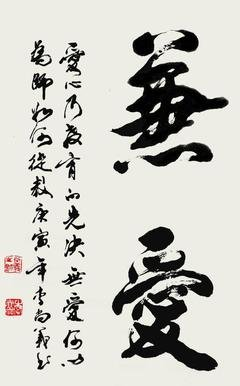 兼愛
愛心乃教育的先決無愛何以
為師如何從教庚寅年李尚義書